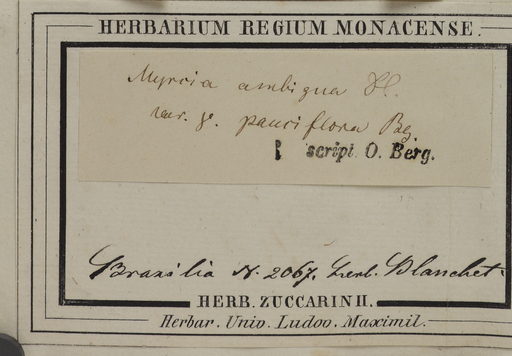 HERBARIUM REGIUM MONACENSE.
Myrcia ambigua DC.
var. γ. pauciflora Bg.
script. O. Berg.
Brasilia N. 2067. herb. Blanchet.
HERB. ZUCCARINII.
Herbar. Univ. Ludov. Maximil.